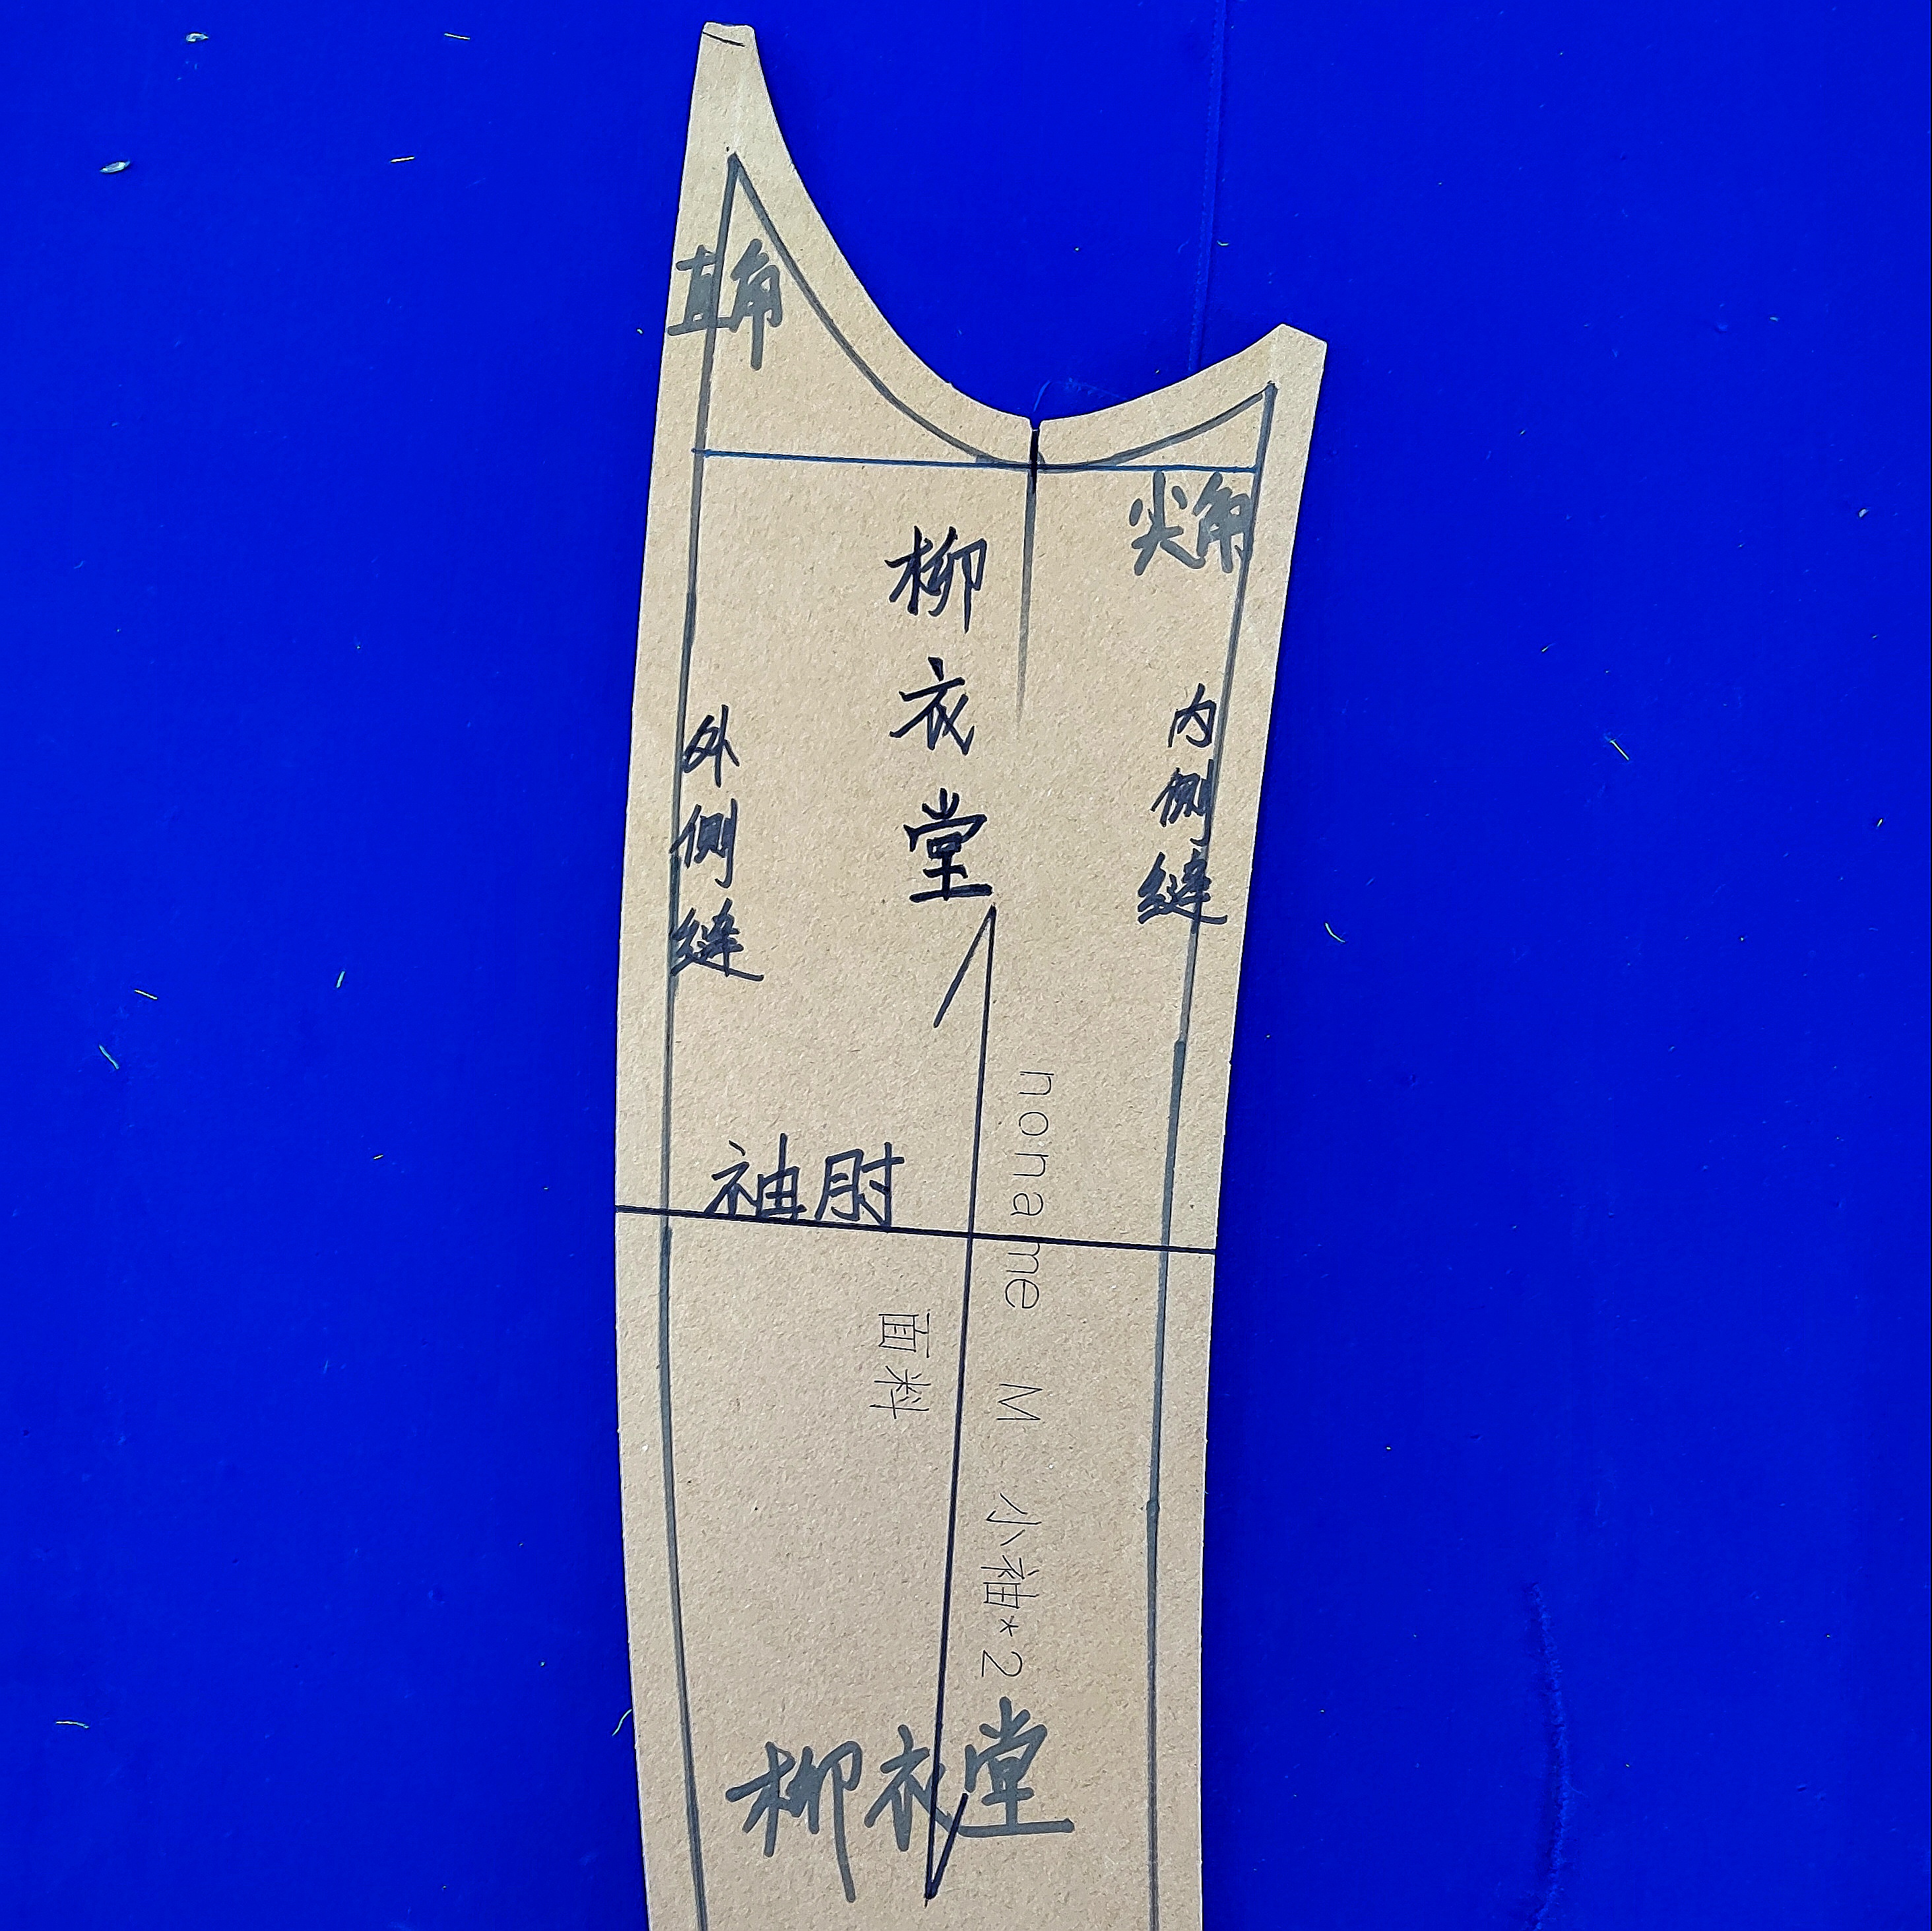 直角
尖角
柳衣堂
外侧缝
内侧缝
袖肘
noname M 小袖*2
面料
柳衣堂